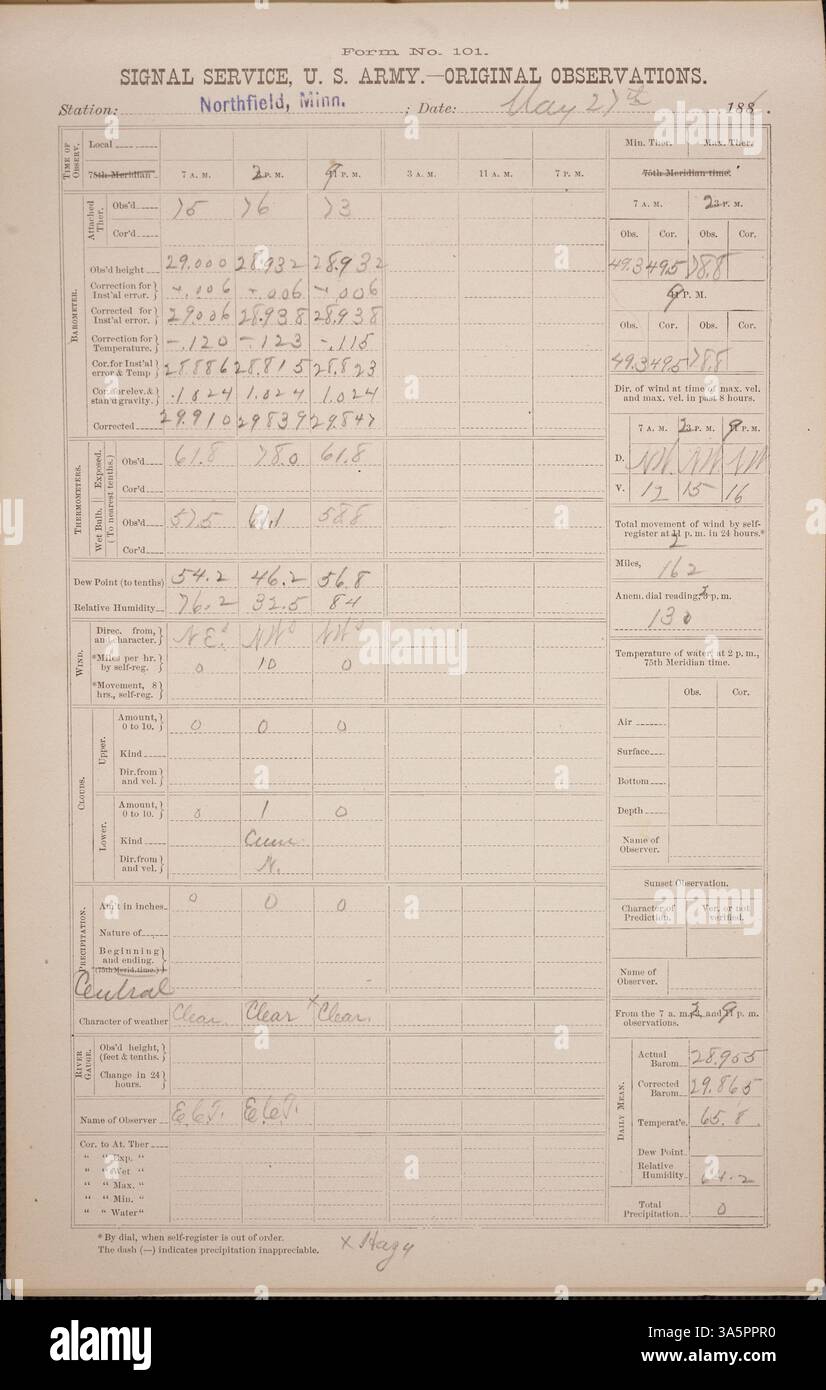 Form No. 101.
SIGNAL SERVICE, U. S. ARMY.—ORIGINAL OBSERVATIONS.
Station: Northfield, Minn. ; Date: May 27th 188 .
TIME OF OBSERV.
Local
75th Meridian 7 A. M. 2 P. M. 9 11 P. M. 3 A M. 11 A. M. 7 P. M.
BAROMETER.
Attached Ther.
Obs'd 75 76 73
Cor'd
Obs'd height 29.000 28.932 28.932
Correction for Inst'al error. +.006 +.006 +.006
Corrected for Inst'al error. 29.006 28.938 28.938
Correction for Temperature. -.120 -.123 -.115
Cor. for Inst'al error & Temp 28.886 28.815 28.823
Cor. for elev. & stand gravity. 1.024 1.024 1.024
Corrected 29.910 29.839 29.847
THERMOMETERS.
(To nearest tenths.)
Exposed.
Obs'd 61.8 78.0 61.8
Cor'd
Wet Bulb.
Obs'd 57.5 61.1 58.8
Cor'd
Dew Point (to tenths) 54.2 46.2 56.8
Relative Humidity 76.2 32.5 84
WIND.
Direc. from, and character. N E. NW NW
*Miles per hr. by self-reg. 0 10 0
*Movement, 8 hrs., self-reg.
CLOUDS.
Upper.
Amount, 0 to 10. 0 0 0
Kind
Dir. from and vel.
Lower.
Amount, 0 to 10. 0 1 0
Kind Cum.
Dir. from and vel. N.
PRECIPITATION.
Am't in inches 0 0 0
Nature of
Beginning and ending.
(75th Merid. time.)
Central
Character of weather Clear. Clear x Clear.
RIVER GAUGE.
Obs'd height, (feet & tenths.)
Change in 24 hours.
Name of Observer
Cor. to At. Ther
" " Exp. "
" " Wet "
" " Max. "
" " Min. "
" " Water "
Min. Ther. Max. Ther.
75th Meridian time.
7 A. M. 2 3 P. M.
Obs. Cor. Obs. Cor.
49.3 49.5 78.8
9 11 P. M.
Obs. Cor. Obs. Cor.
49.3 49.5 78.8
Dir. of wind at time of max. vel. and max. vel. in past 8 hours.
7 A. M. 2 3 P. M. 9 11 P. M.
D. NW NW NW
V. 12 15 16
Total movement of wind by self-register at 11 p. m. in 24 hours.*
2
Miles, 162
Anem. dial reading, 3 p. m.
130
Temperature of water at 2 p. m., 75th Meridian time.
Obs. Cor.
Air
Surface
Bottom
Depth
Name of Observer.
Sunset Observation.
Character of Prediction. Ver. or not verified.
Name of Observer.
From the 7 a. m., 3, and 11 p. m. observations. 2 9
DAILY MEAN.
Actual Barom. 28.955
Corrected Barom. 29.865
Temperat'e. 65.8
Dew Point.
Relative Humidity. 64.2
Total Precipitation 0
* By dial, when self-register is out of order.
The dash (—) indicates precipitation inappreciable.
x Hazy
alamy
Image ID: 3A5PPR0
www.alamy.com